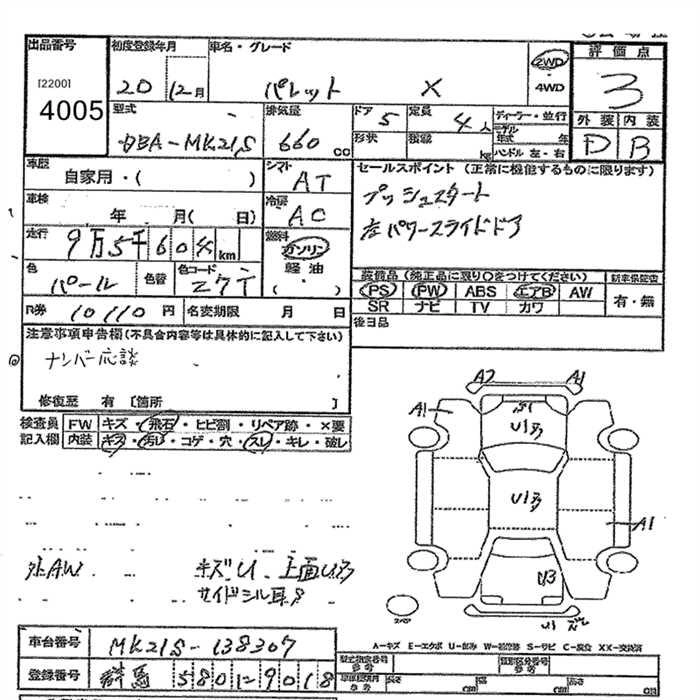 出品番号 初度登録年月 車名・グレード 2WD 評価点
[2200] 20 12月 パレット X ・4WD 3
4005 型式 排気量 ドア 5 定員 4人 ディーラー・並行 外装 内装
DBA-MK21S 660 cc 形状 積載 kg モデル年式 年 D B
ハンドル 左・右
車歴 シフト セールスポイント(正常に機能するものに限ります)
自家用・( ) AT プッシュスタート
車検 冷房 左パワースライドドア
年 月( 日) AC
走行 燃料
9万5千604km ガソリン
色 色替 色コード 軽油 装備品(純正品に限り○をつけてください) 新車保証書
パール Z7T ( ・ ) PS PW ABS エアB AW 有・無
SR ナビ TV カワ
R券 10110円 名変期限 月 日 後日品
注意事項申告欄(不具合内容等は具体的に記入して下さい)
ナンバー応談
修復歴 有 [箇所 ]
検査員 FW キズ・飛石・ヒビ割・リペア跡・×要
記入欄 内装 キズ・汚れ・コゲ・穴・スレ・キレ・破レ
A2 A1
A1 U1
U1
U1
A1
U3
社外AW キズU、上面U
サイドシル
スペア U1
A-キズ E-エクボ U-凹み W-補修跡 S-サビ C-腐食 XX-交換済
車台番号 MK21S-138307
登録番号 群馬 580 い 9018 型式指定番号 類別区分番号
参考 長さ cm 幅 cm 高さ cm